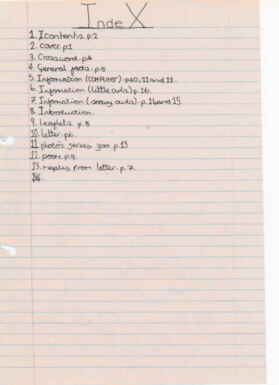 Index
1. Icontents. p.2
2. cover. p.1
3. Crossword. p.4
4. General facts. p.5
5. Information (computer). p.10, 11 and 12.
6. Information (little owls) p.16.
7. Information (snowy owls). p.14 and 15.
8. Introduction.
9. leaflets. p.8
10. letter. p.6.
11. photo's p.13
12. poem. p.9.
13. replies from letter. p.7.
14.